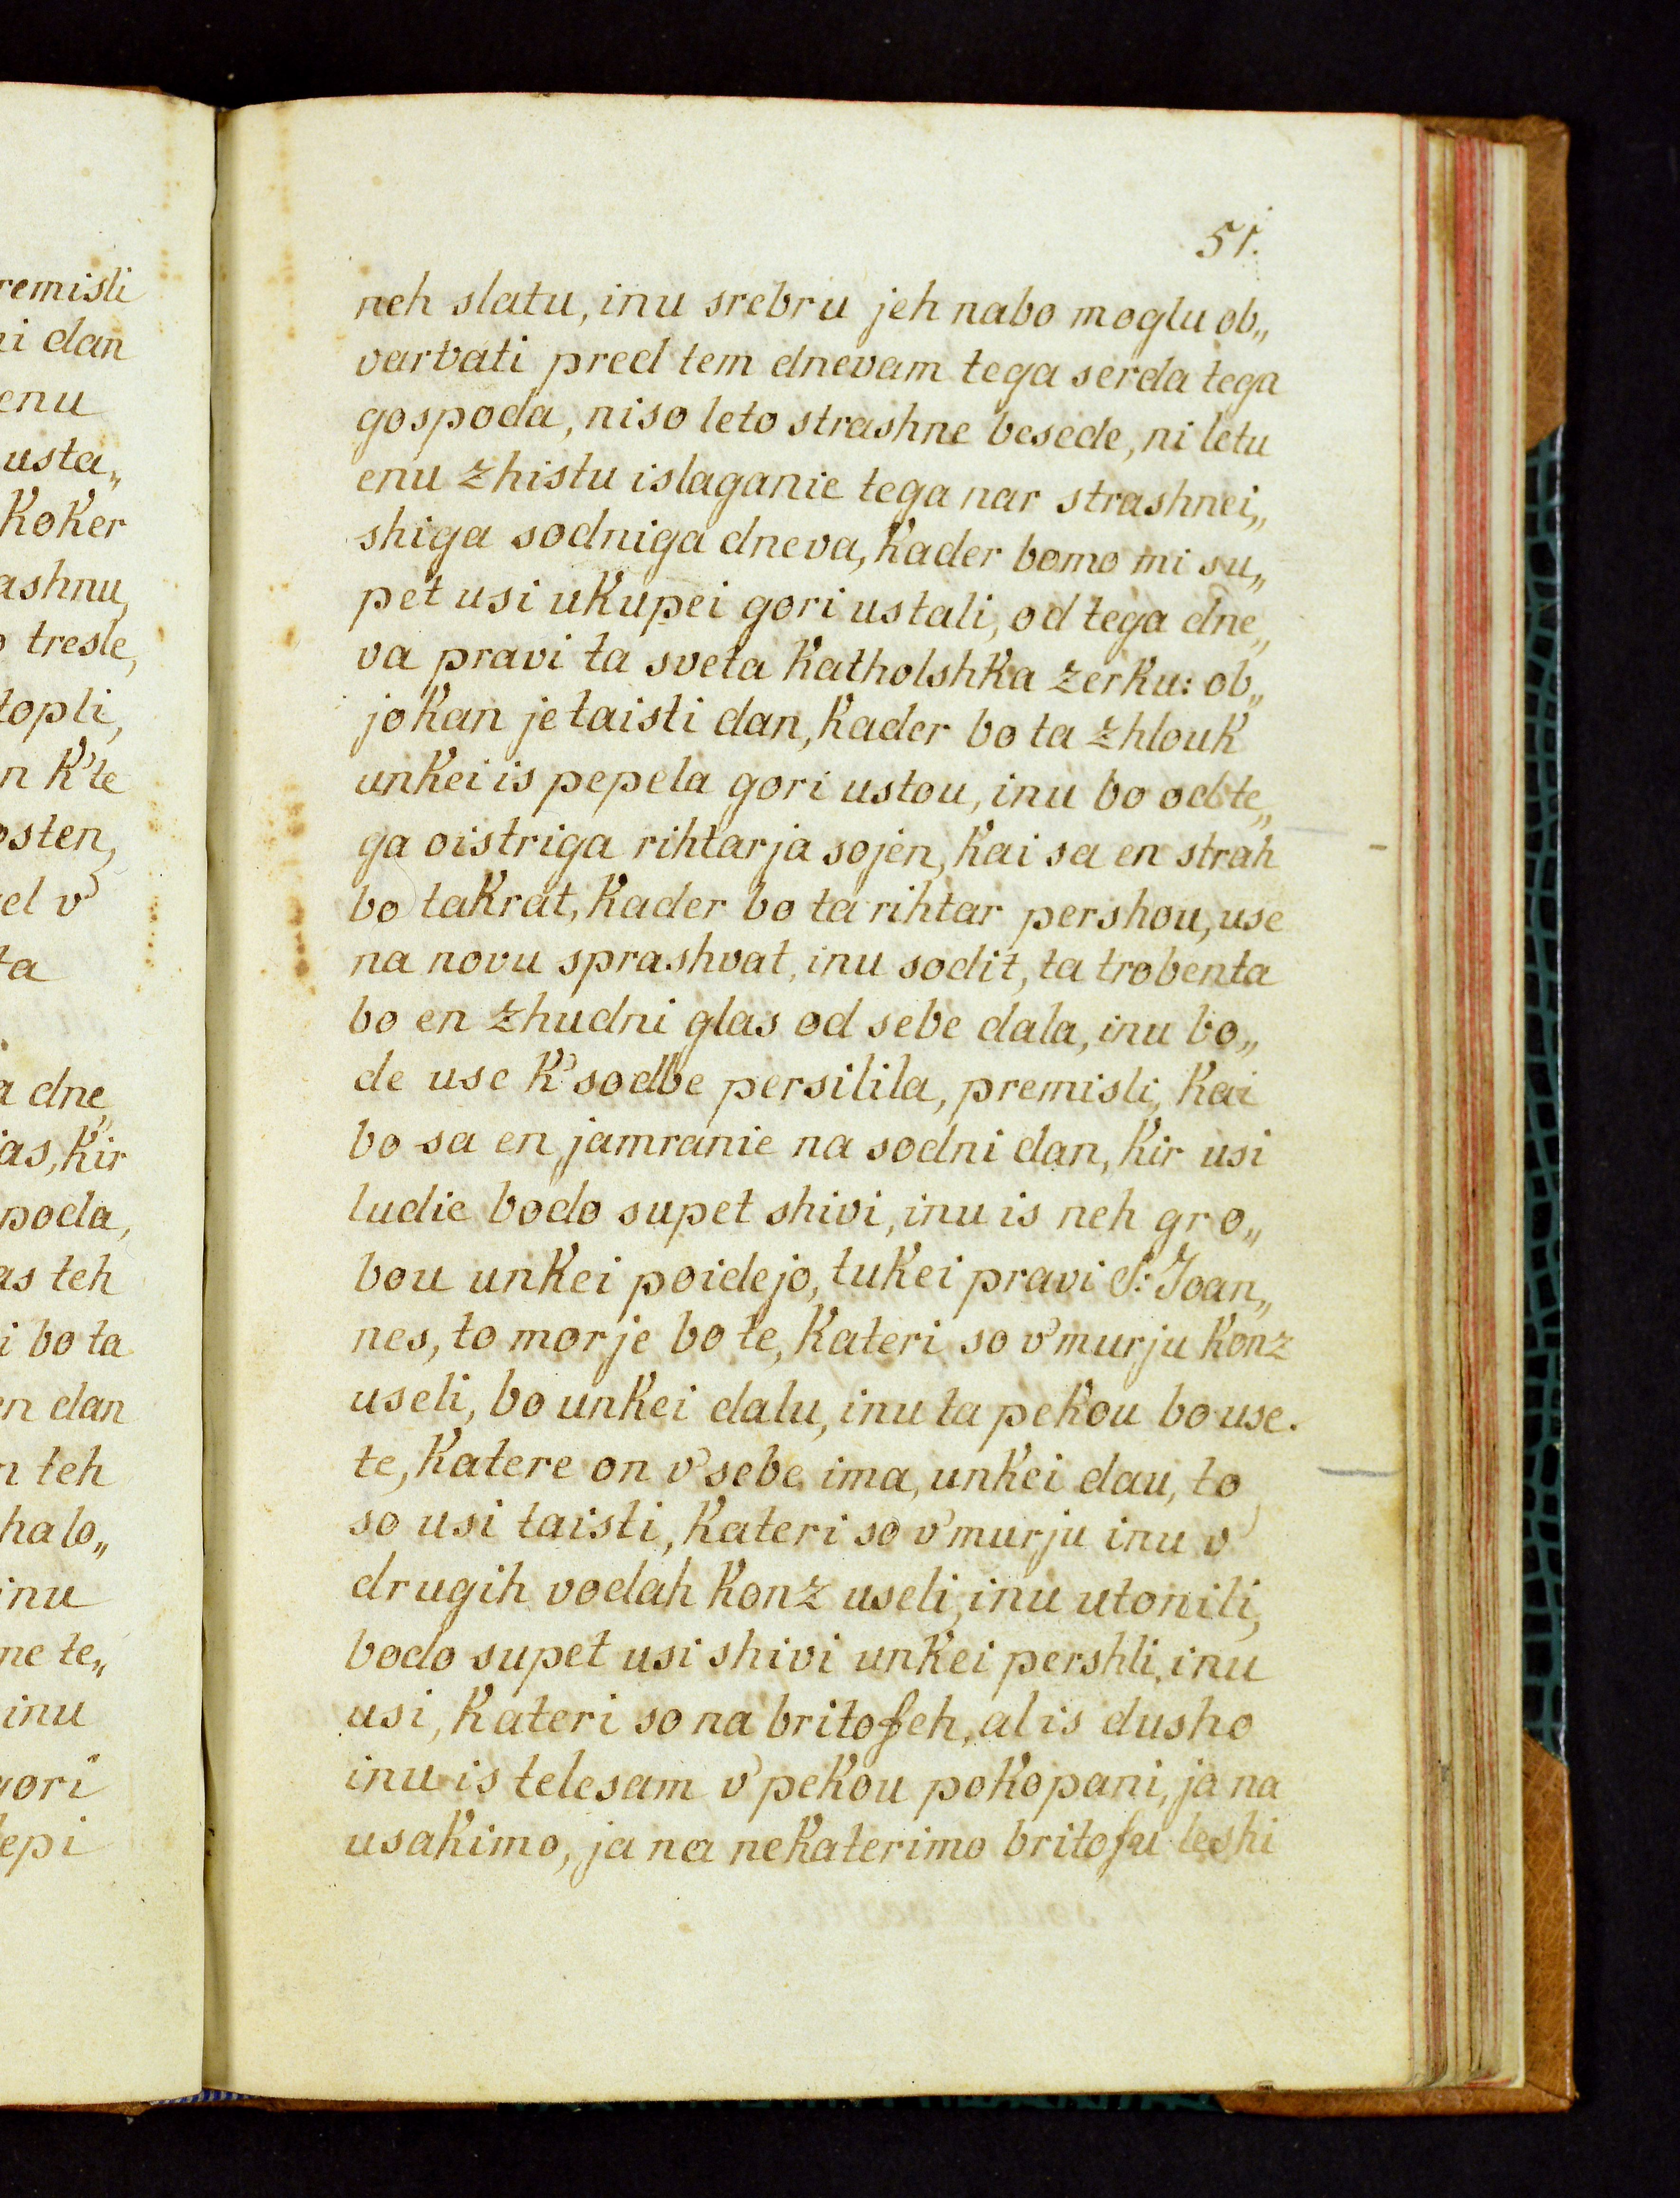 51.
neh slatu, inu srebru jeh nabo moglu ob„
varvati pred tem dnevam tega serda tega
gospoda, niso leto strashne besede, ni letu
enu zhistu islaganie tega nar strashnei„
shiga sodniga dneva, kader bomo mi su„
pet usi ukupei gori ustali, od tega dne„
va pravi ta sveta Katholshka zerku: ob„
jokan je taisti dan, kader bo ta zhlouk
unkei is pepela gori ustou, inu bo od te„
ga oistriga rihtarja sojen, kai sa en strah
bo takrat, kader bo ta rihtar pershou, use
na novu sprashvat, inu sodit, ta trobenta
bo en zhudni glas od sebe dala, inu bo„
de use k' sodbe persilila, premisli, kai
bo sa en jamranie na sodni dan, kir usi
ludie bodo supet shivi, inu is neh gro„
bou unkei poidejo, tukei pravi S: Joan„
nes, to morje bo te, kateri so v' murju konz
useli, bo unkei dalu, inu ta pekou bo use.
te, katere on v' sebe ima, unkei dau, to
so usi taisti, kateri so v' murju inu v'
drugih vodah konz useli, inu utonili,
bodo supet usi shivi unkei pershli, inu
usi, kateri so na britofeh, al is dusho
inu is telesam v' pekou pokopani, ja na
usakimo, ja na nekaterimo britofu leshi
remisli
ni dan
enu
usta„
koker
ashnu,
tresle,
topli,
n k' te
osten,
el v'
ta
a dne„
as, kir
poda,
as teh
i bo ta
en dan
n teh
halo„
inu
me te„
inu
gori
lepi